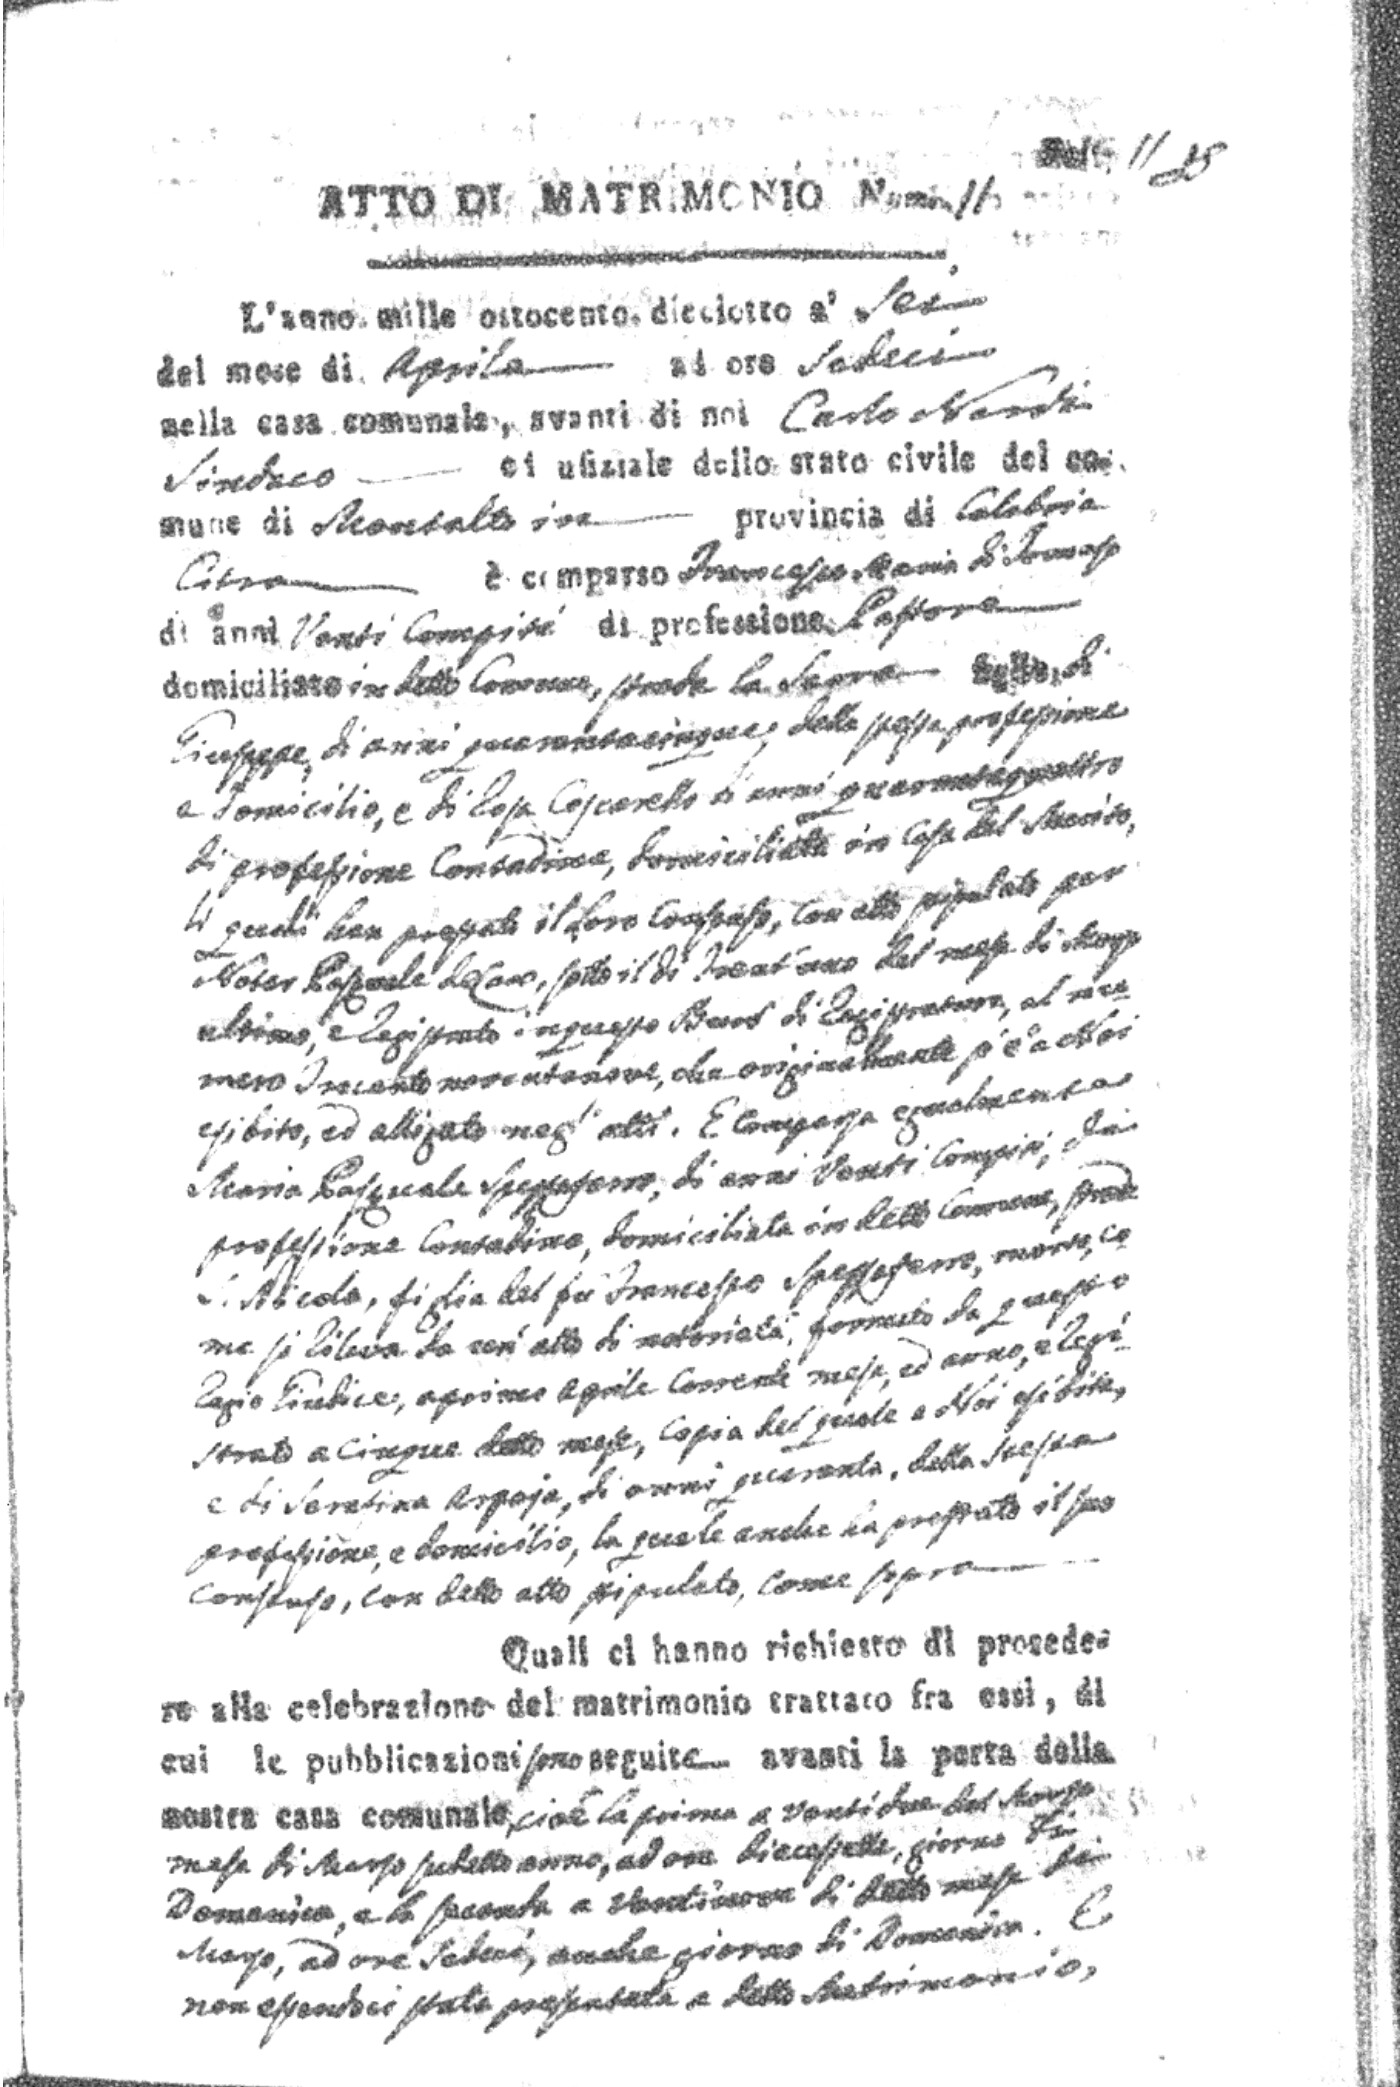 11 25
ATTO DI MATRIMONIO Num. 11
L'anno mille ottocento dieciotto a' Sei
del mese di Aprile ad ore Sedeci
nella casa comunale, avanti di noi Carlo Nardi
Sindaco ed ufiziale dello stato civile del co-
mune di Montalto in provincia di Calabria
Citra è comparso Francesco Maria di Tomaso
di anni Venti Compiti di professione Pastore
domiciliato in detto Comune, strada la Serra figlio di
Giuseppe, di anni quarantacinque, della stessa professione
e domicilio, e di Rosa Coscarello di anni quarantaquattro
di professione Contadina, domiciliata in Casa del Marito,
li quali han prestato il loro Consenso, con atto stipulato per
Notar Pasquale de , sotto il dì Trent'uno del mese di Marzo
ultimo, e Registrato in questo Burò di Registratura, al nu-
mero Trecento novantanove, che originalmente s'è a Noi
esibito, ed alligato negl'atti. E Comparsa egualmente
Maria Pasquale Spezzaferro, di anni Venti Compiti, di
professione Contadina, domiciliata in detto Comune, strada
S. Nicola, figlia del fù Francesco Spezzaferro, morto, co-
me si rileva da un' atto di notorietà, formato da questo
Regio Giudice, a primo Aprile Corrente mese, ed anno, e Regi-
strato a Cinque detto mese, Copia del quale a Noi esibita,
e di Serafina Arpaja, di anni quaranta, della stessa
professione, e domicilio, la quale anche ha prestato il suo
Consenso, con detto atto stipulato, come sopra
Quali ci hanno richiesto di procede-
re alla celebrazione del matrimonio trattato fra essi, di
cui le pubblicazioni sono seguite avanti la porta della
nostra casa comunale, cioè la prima a ventidue del Marzo
mese di Marzo sudetto anno, ad ore diecessette, giorno di
Domenica, e la seconda a ventinove di detto mese di
Marzo, ad ore Sedeci, anche giorno di Domenica. E
non essendoci stata presentata a detto Matrimonio,